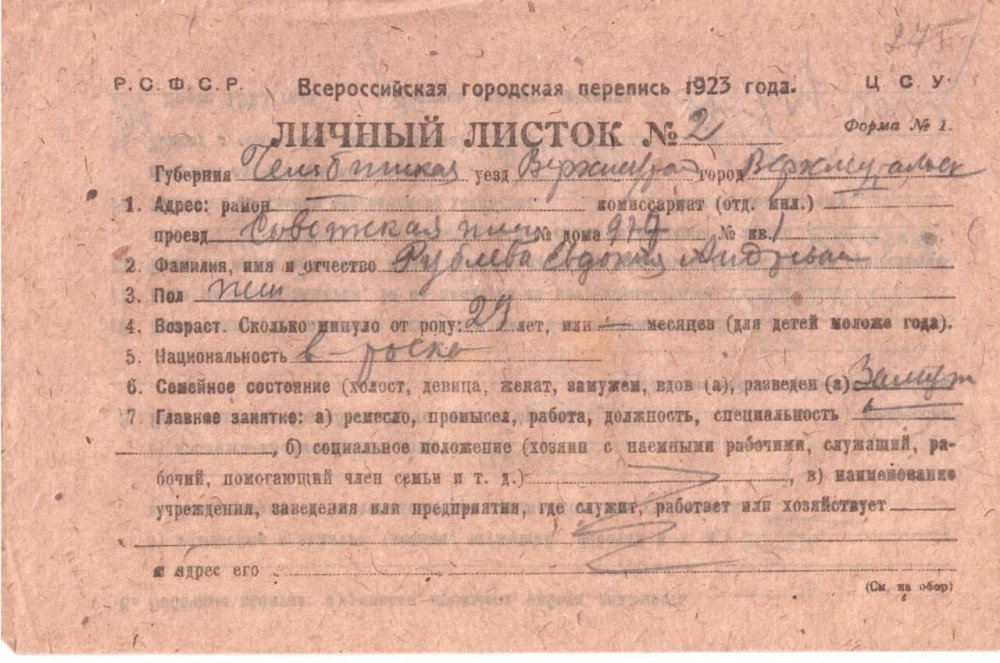 27
Р. С. Ф. С. Р. Всероссийская городская перепись 1923 года. Ц. С. У.
ЛИЧНЫЙ ЛИСТОК № 2 Форма № 1.
Губерния Челябинская уезд Верхнеурал город Верхнеуральск
1. Адрес: район комиссариат (отд. мил.)
проезд Советская № дома № кв. 1
2. Фамилия, имя и отчество Рублева Евдокия Андреевна
3. Пол жен
4. Возраст. Сколько минуло от роду: 29 лет, или — месяцев (для детей моложе года).
5. Национальность в-роска
6. Семейное состояние (холост, девица, женат, замужем, вдов (а), разведен (а) Замуж
7. Главное занятие: а) ремесло, промысел, работа, должность, специальность
, б) социальное положение (хозяин с наемными рабочими, служащий, ра-
бочий, помогающий член семьи и т. д.) , в) наименование
учреждения, заведения или предприятия, где служит, работает или хозяйствует
и адрес его
(См. на обор)